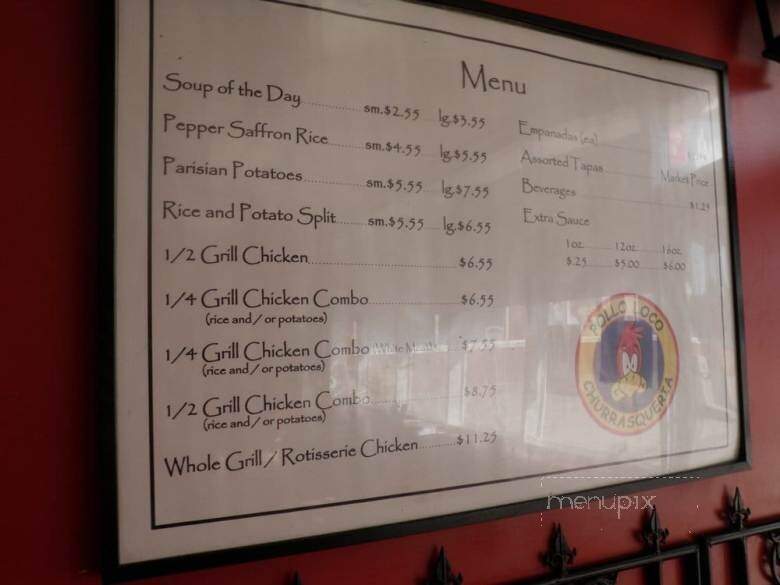 Menu
Soup of the Day sm.$2.55 lg.$3.55
Pepper Saffron Rice sm.$4.55 lg.$5.55
Parisian Potatoes sm.$5.55 lg.$7.55
Rice and Potato Split sm.$5.55 lg.$6.55
1/2 Grill Chicken $6.55
1/4 Grill Chicken Combo $6.55
(rice and/or potatoes)
1/4 Grill Chicken Combo (White Meat)
(rice and/or potatoes)
1/2 Grill Chicken Combo $8.75
(rice and/or potatoes)
Whole Grill/Rotisserie Chicken $11.25
Empanadas (ea)
Assorted Tapas Market Price
Beverages $1.25
Extra Sauce
1oz. 12oz. 16oz.
$.25 $5.00 $6.00
POLLO LOCO
CHURRASQUERIA
menupix